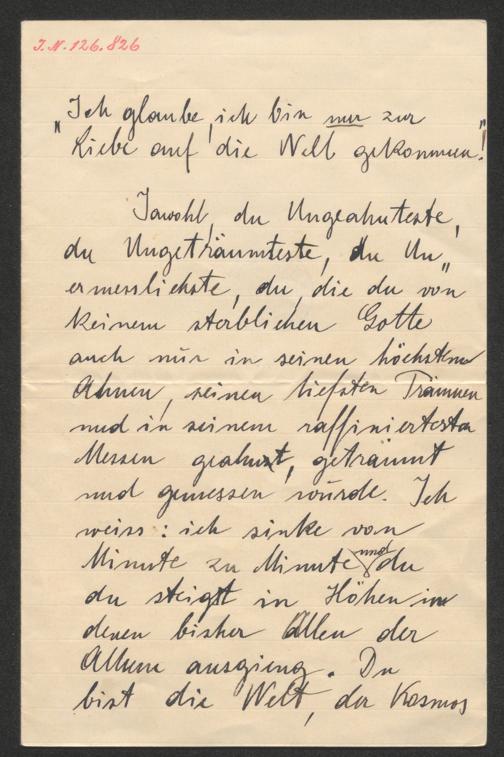 I.N. 126.826
„Ich glaube, ich bin nur zur
Liebe auf die Welt gekommen!"
Jawohl, du Ungeahnteste,
du Ungeträumteste, du Un„
ermesslichste, du, die du von
keinem sterblichen Gotte
auch nur in seinen höchsten
Ahnen, seinen tiefsten Träumen
und in seinem raffiniertesten
Messen geahnt, geträumt
und gemessen würde. Ich
weiss: ich sinke von
Minute zu Minute und du
du steigst in Höhen in
denen bisher Allen der
Athem ausgieng. Du
bist die Welt, der Kosmos